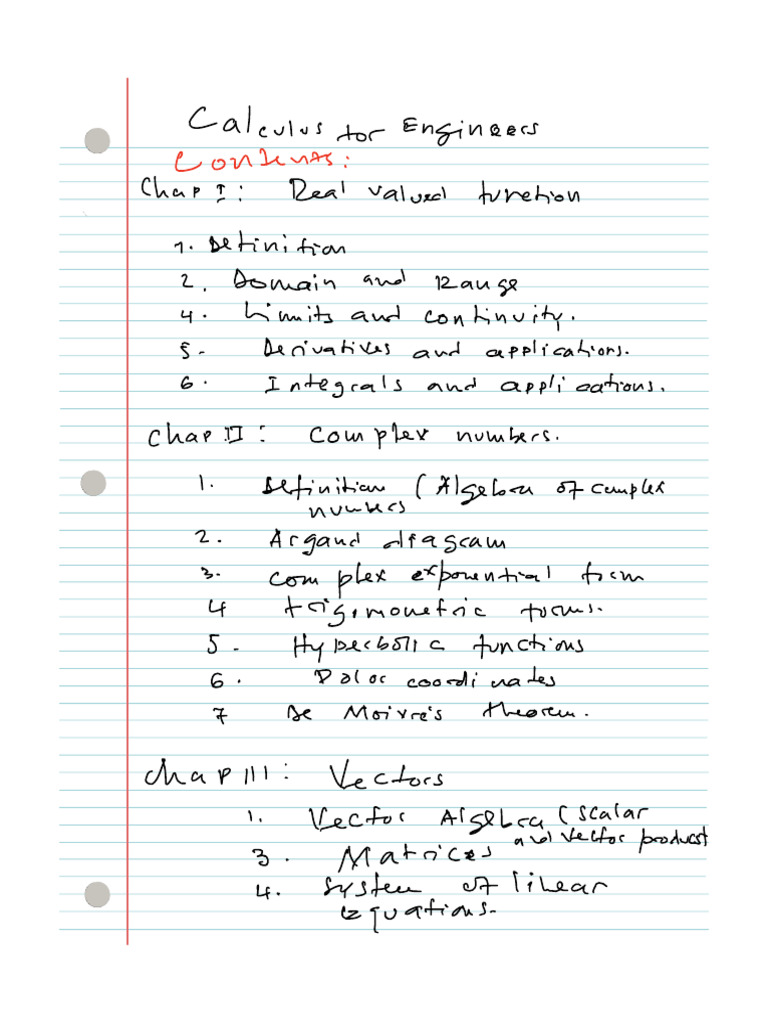 Calculus for Engineers
Contents:
Chap I: Real valued function
1. Definition
2. Domain and Range
4. Limits and continuity.
5- Derivatives and applications.
6. Integrals and applications.
Chap II: Complex numbers.
1. Definition (Algebra of complex
numbers
2. Argand diagram
3. complex exponential form
4 trigonometric forms.
5- Hyperbolic functions
6. Polar coordinates
7 De Moivre's theorem.
Chap III: Vectors
1. Vector Algebra (scalar
and vector product
3. Matrices
4. System of linear
Equations-